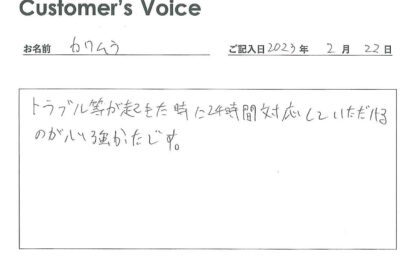 Customer's Voice
お名前 カワムラ ご記入日2023年 2月 22日
トラブル等が起きた時に24時間対応していただける
のが心強かたです。